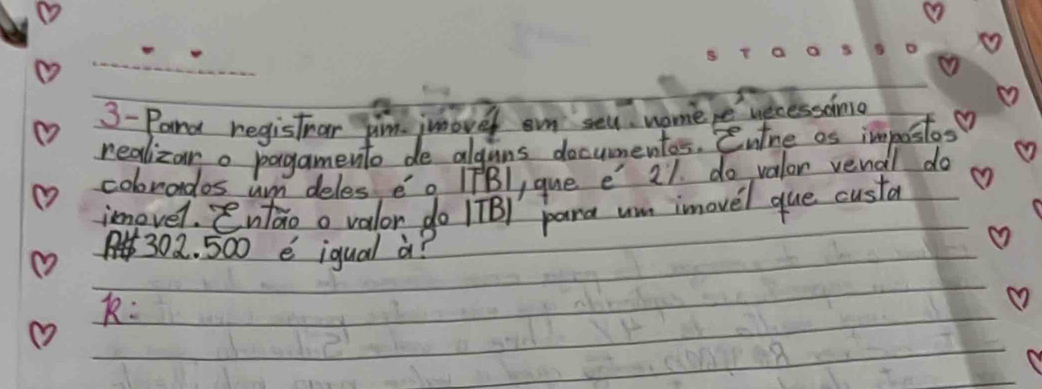 S T Q Q S S D
3-Para registrar um imovél em seu nome é necessário
realizar o pagamento de alguns documentos. Entre os impostos
cobrados um deles é o ITBI, que é 2% do valor venal do
imovel. Então o valor do ITBI para um imovél que custa
R$302.500 é igual à?
R: